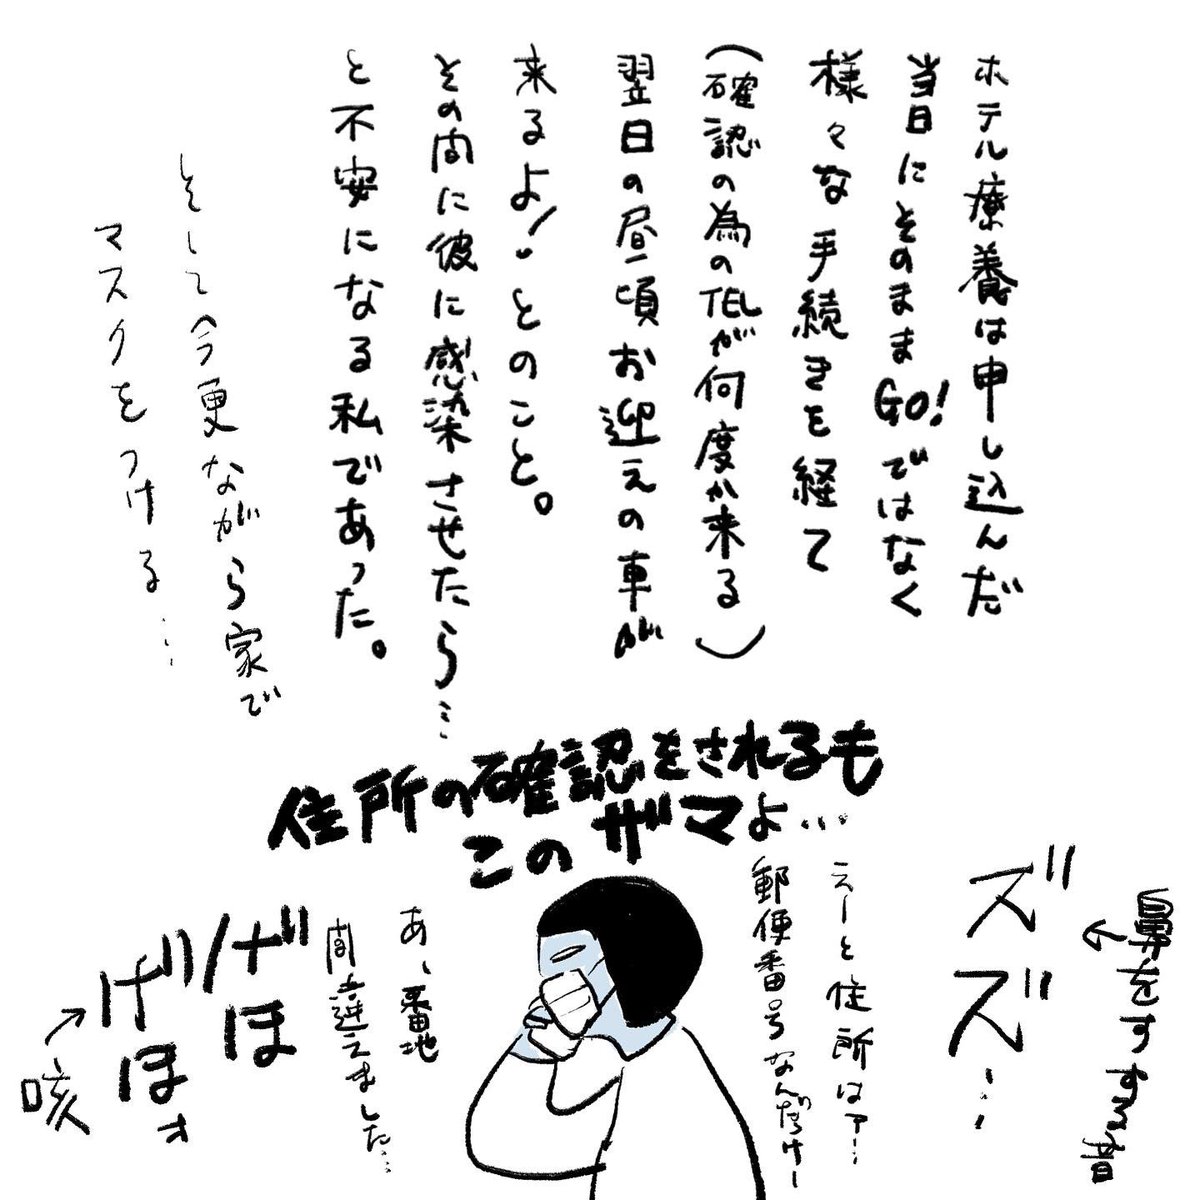 ホテル療養は申し込んだ
当日にそのままGO!ではなく
様々な手続きを経て
(確認の為のTELが何度か来る)
翌日の昼頃お迎えの車が
来るよ!とのこと。
その間に彼に感染させたら…
と不安になる私であった。
そして今更ながら家で
マスクをつける…
住所の確認をされるも
このザマよ…
ズズ…
鼻をすする音
えーと住所はァ…
郵便番号なんだっけー
あ、番地
間違えました…
げほ
げほッ
咳